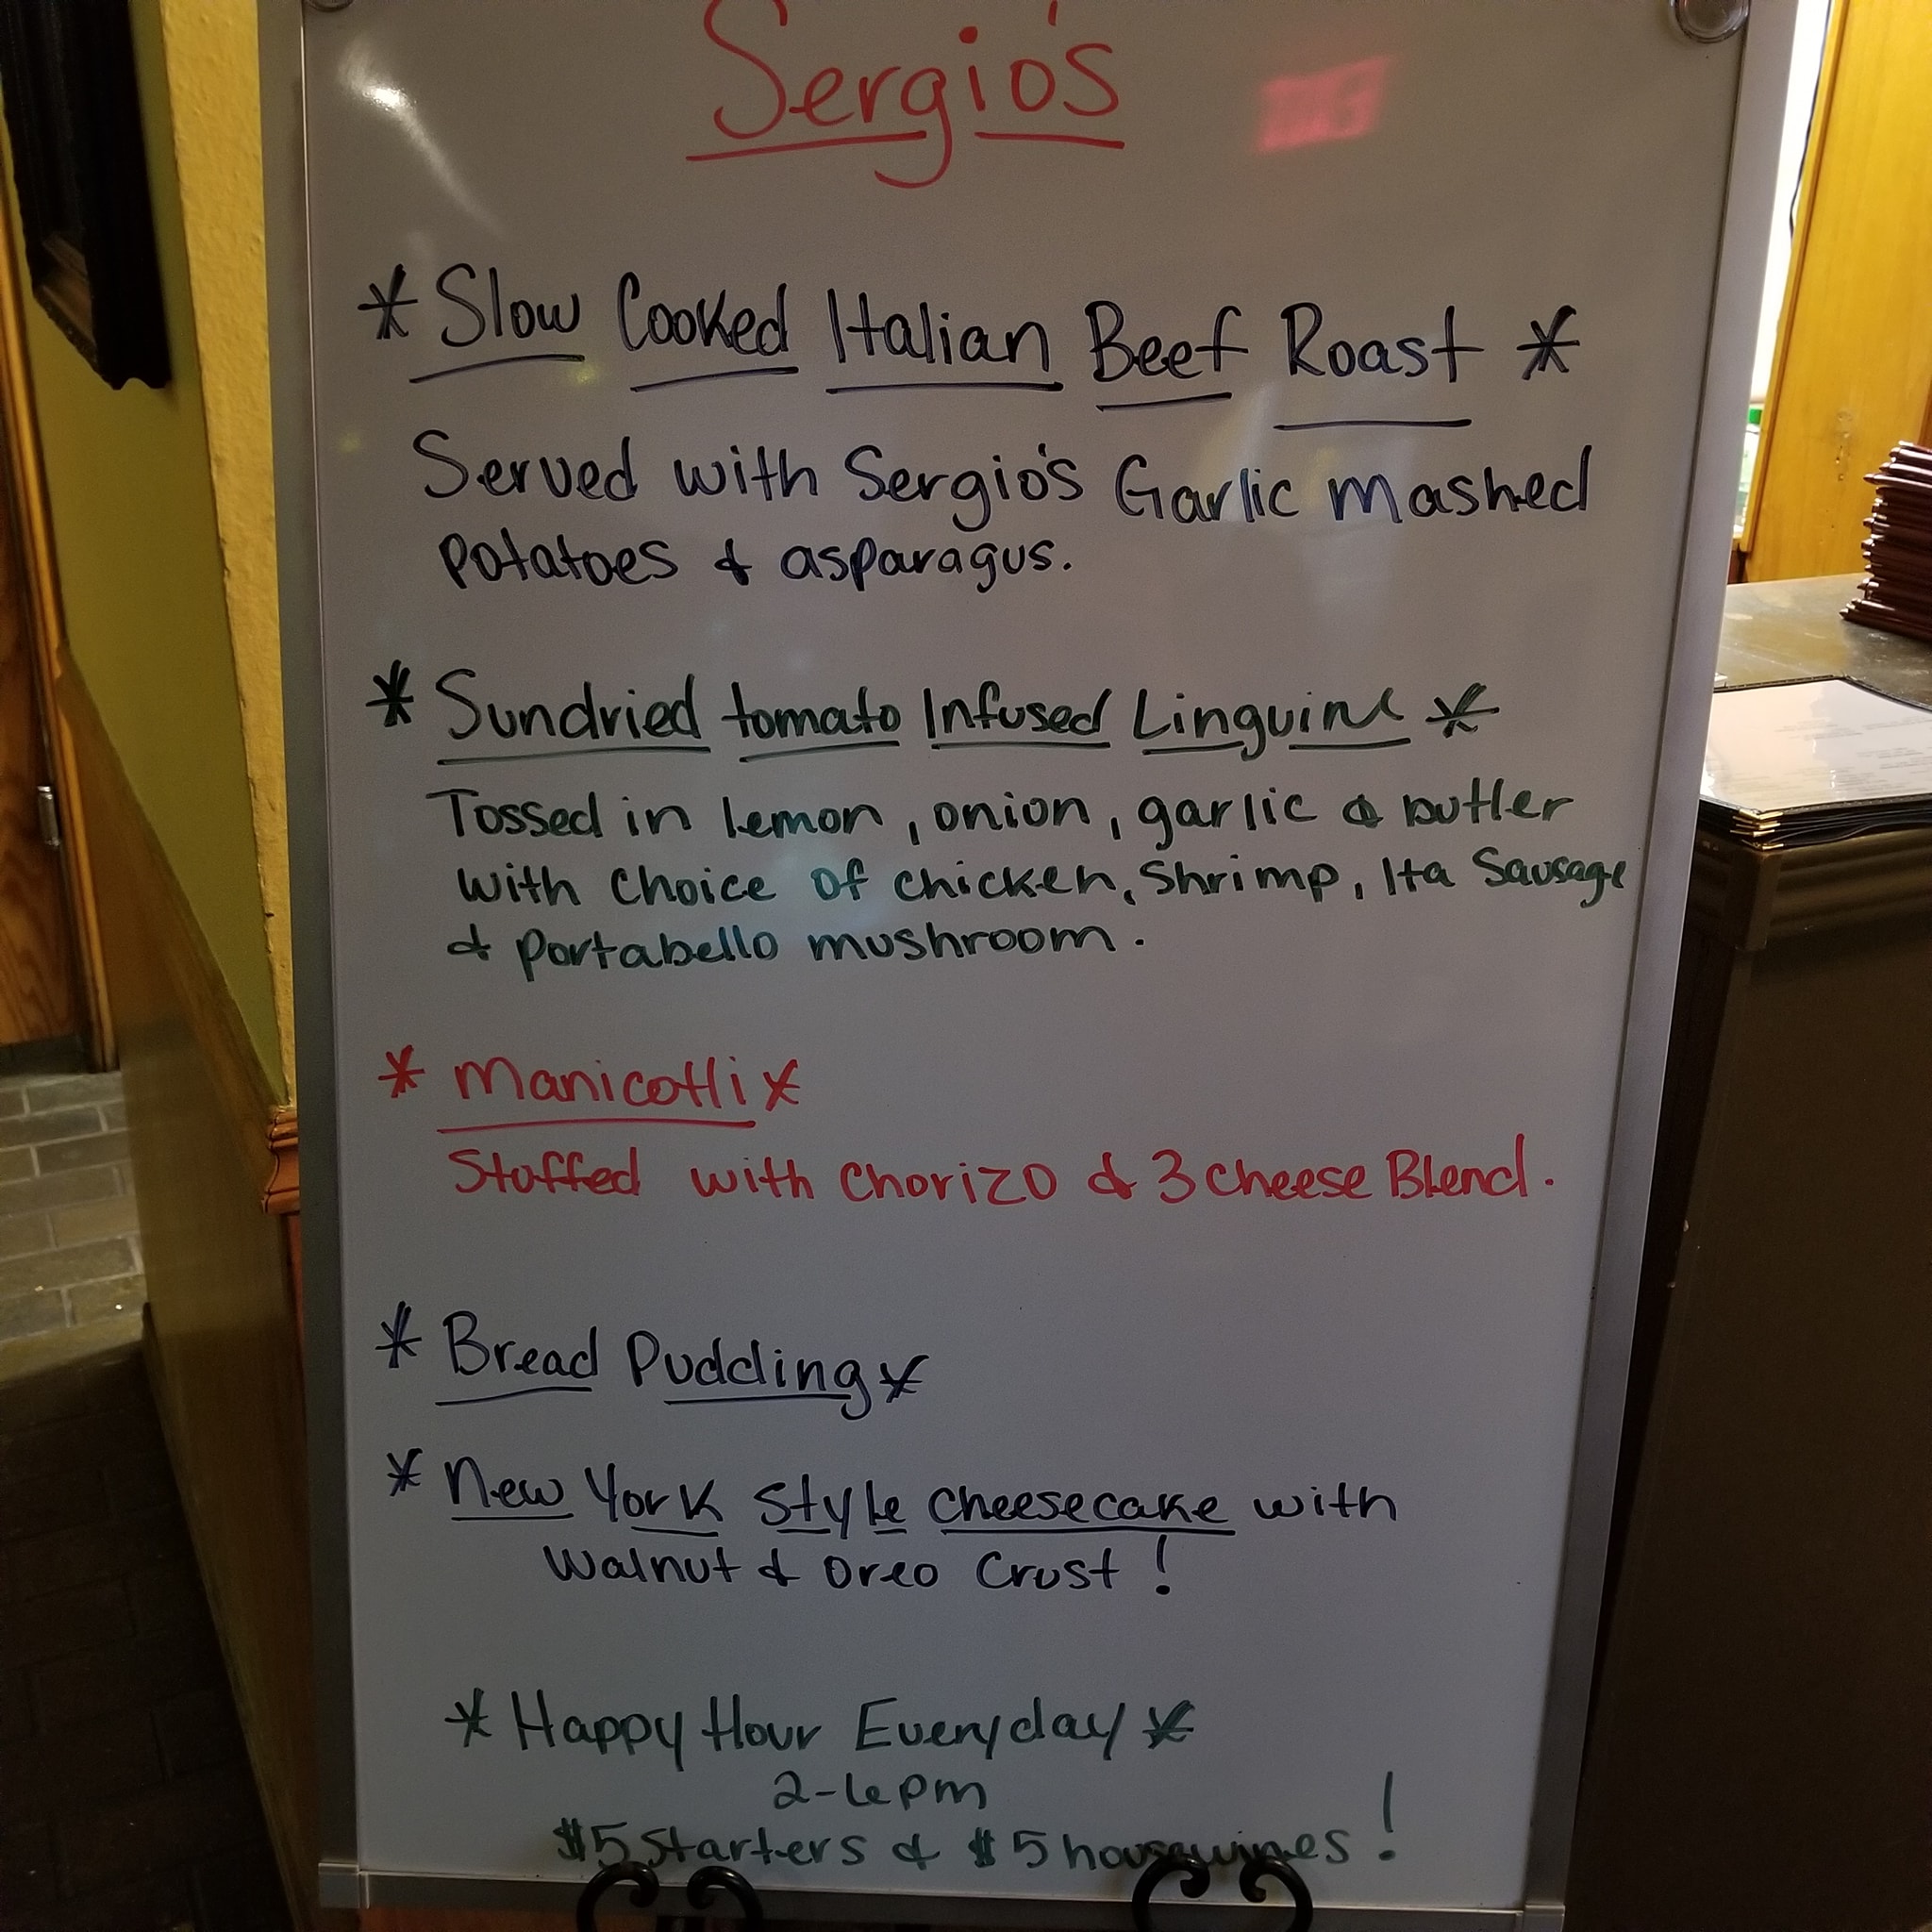 Sergio's
* Slow Cooked Italian Beef Roast *
Served with Sergio's Garlic mashed
potatoes & asparagus.
* Sundried tomato Infused Linguine *
Tossed in lemon, onion, garlic & butter
with choice of chicken, Shrimp, Ita Sausage
& portabello mushroom.
* Manicotti *
Stuffed with Chorizo & 3 cheese Blend.
* Bread Pudding *
* New York Style cheesecake with
Walnut & Oreo Crust!
* Happy Hour Everyday *
2-6pm
$5 Starters & $5 housewines!